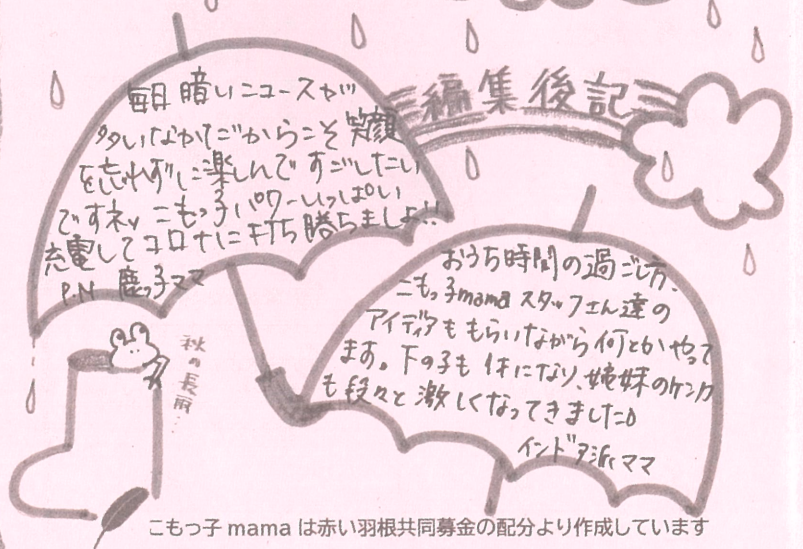 編集後記
毎日暗いニュースが
多いなかだからこそ笑顔
を忘れずに楽しんですごしたい
ですネッ こもっ子パワーいっぱい
充電してコロナに打ち勝ちましょ!!
P.N 鹿っ子ママ
おうち時間の過ごし方、
こもっ子mama スタッフさん達の
アイディアももらいながら何とかやって
ます。下の子も1才になり、姉妹のケンカ
も段々と激しくなってきました。
インドア派ママ
秋の長雨…
こもっ子 mama は赤い羽根共同募金の配分より作成しています